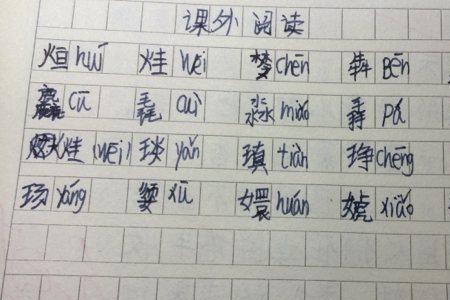 课外阅读
烜 huǐ 烓 wēi 棽 chēn 犇 Bēn
麤 cū 毳 cuì 淼 miǎo 掱 pá
烓(wēi) 琰 yǎn 瑱 tiàn 琤 chēng
玚 yáng 嬃 xū 嬛 huán 婋 xiāo